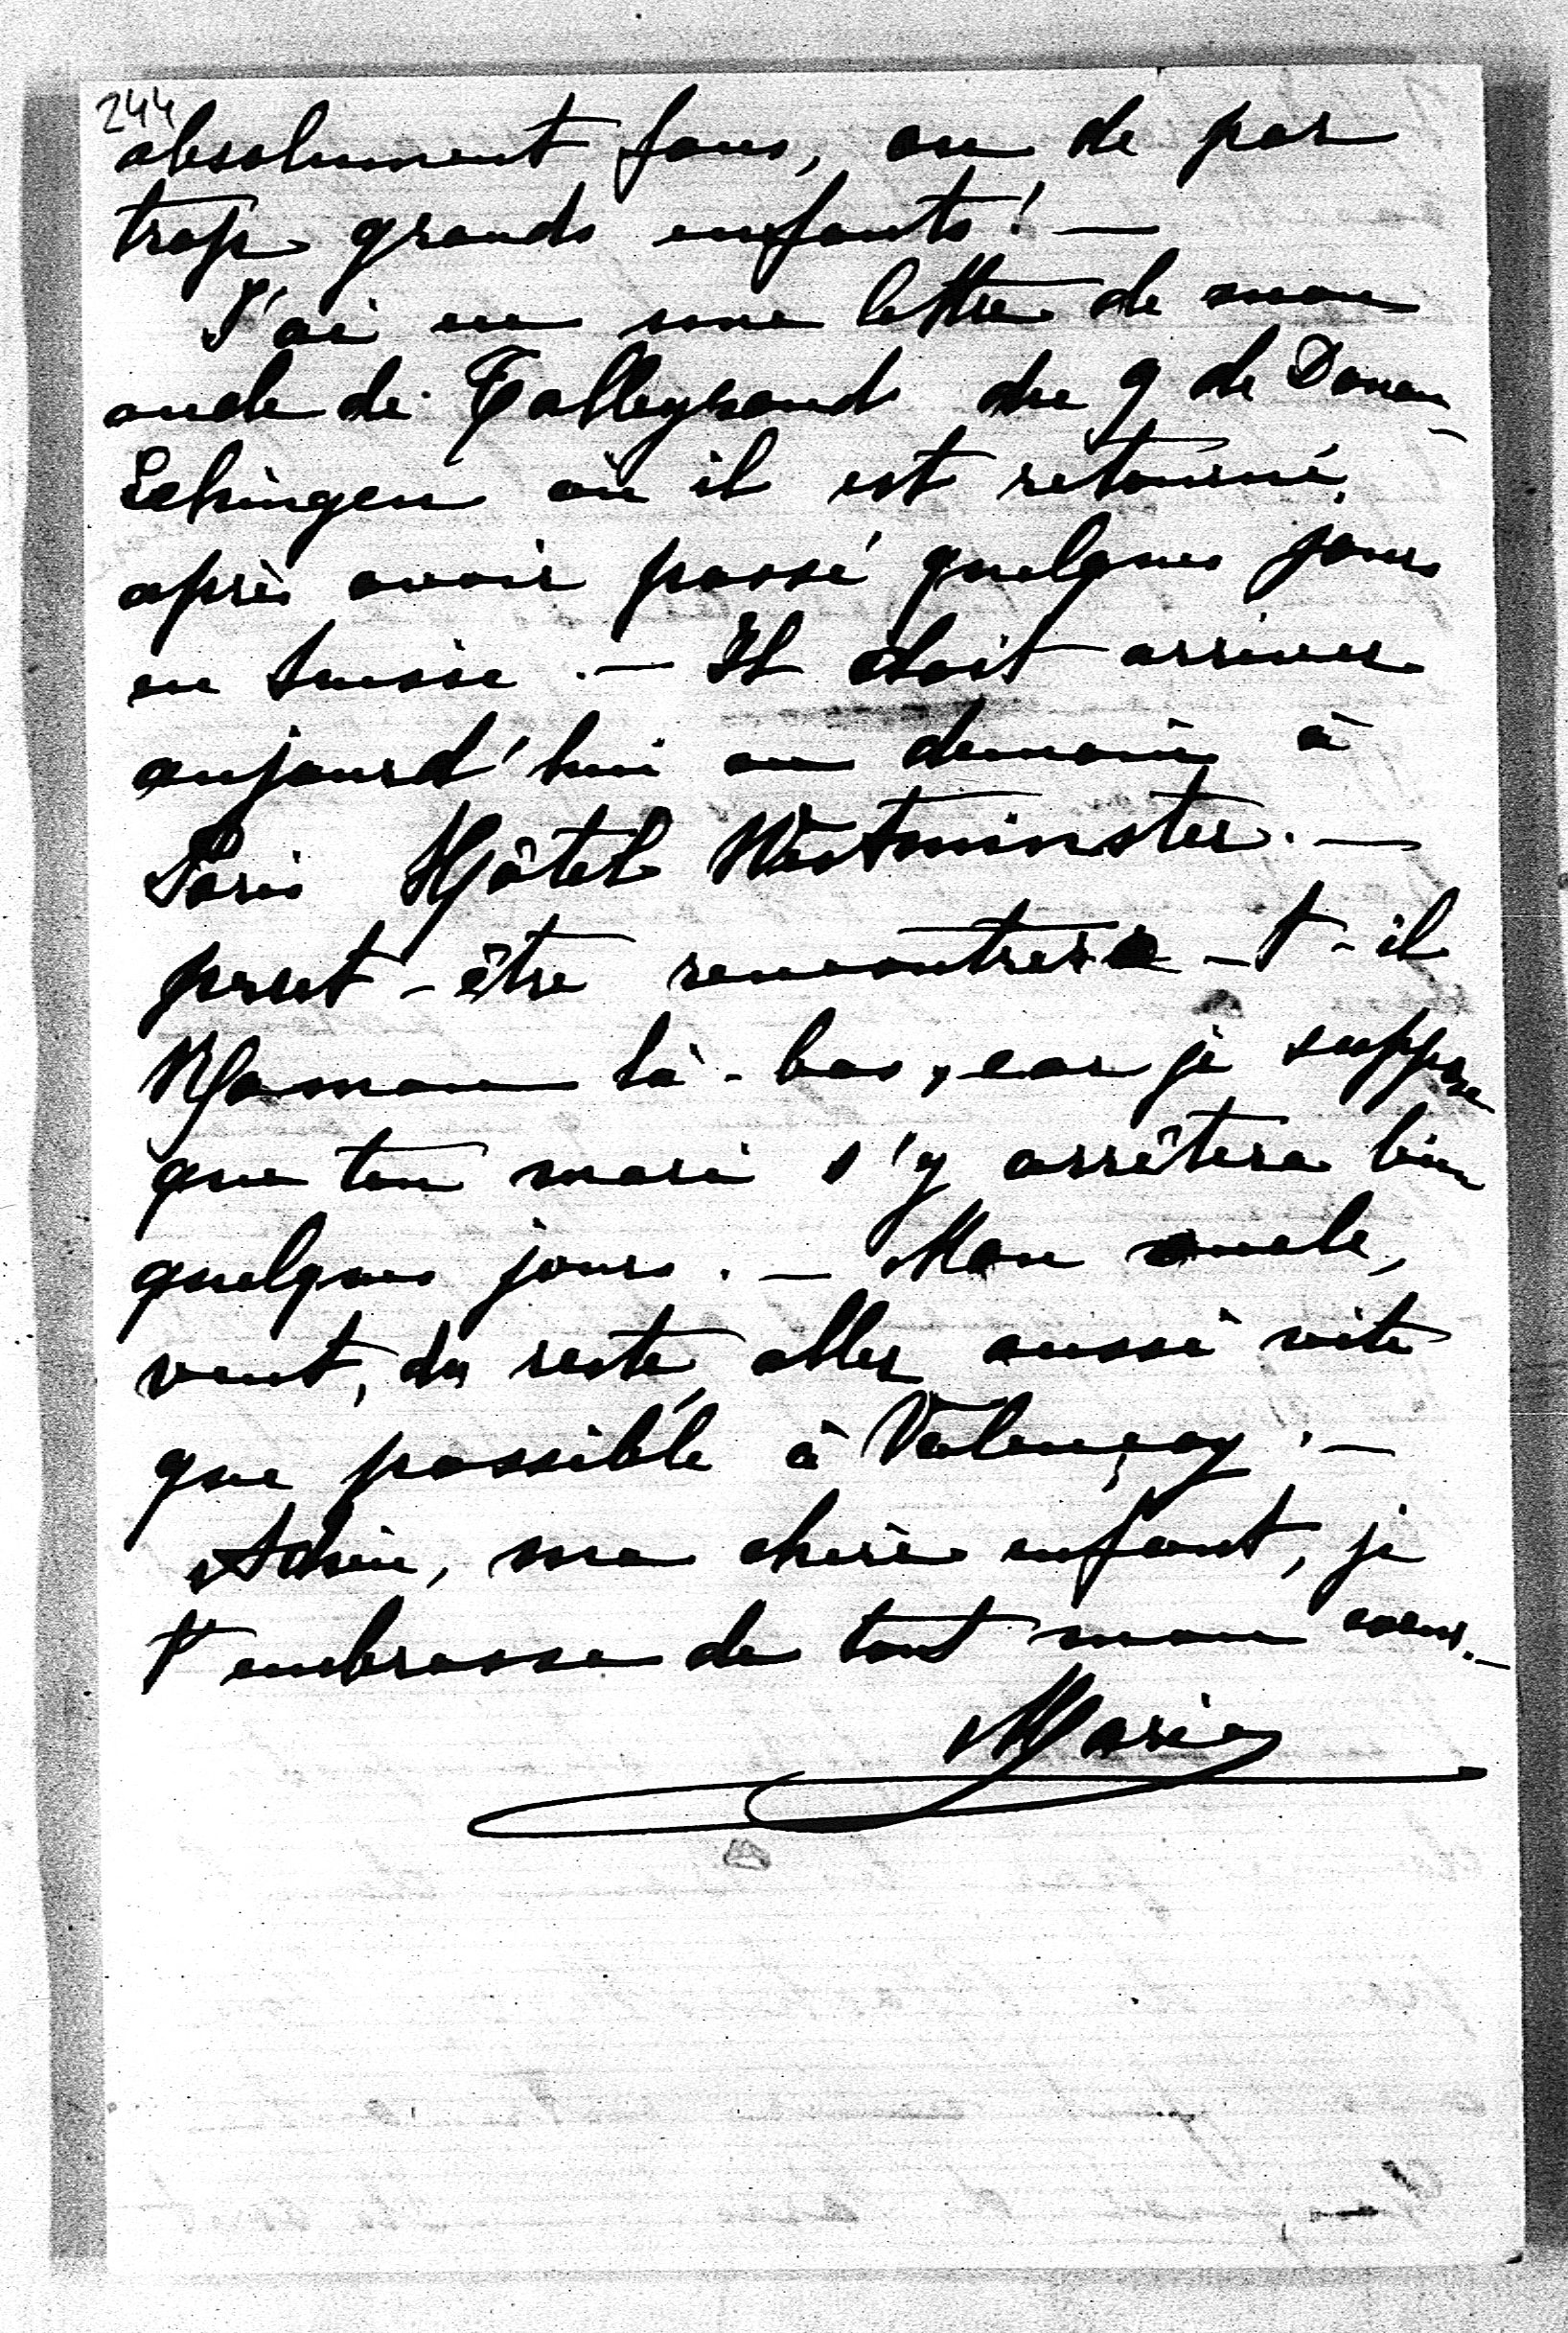 244
absolument fous, ou de par
trop grands enfants! —
J'ai eu une lettre de mon
oncle de Talleyrand du 9 de Donau-
Echingen où il est retourné,
après avoir passé quelques jours
en Suisse. — Il doit arriver
aujourd'hui ou demain à
Paris Hôtel Westminster. —
peut-être rencontrera-t-il
Maman là-bas, car je suppose
que ton mari s'y arrêtera bien
quelques jours. — Mon oncle,
veut, du reste, aller aussi vite
que possible à Valençay. —
Adieu, ma chère enfant, je
t'embrasse de tout mon coeur. —
Marie